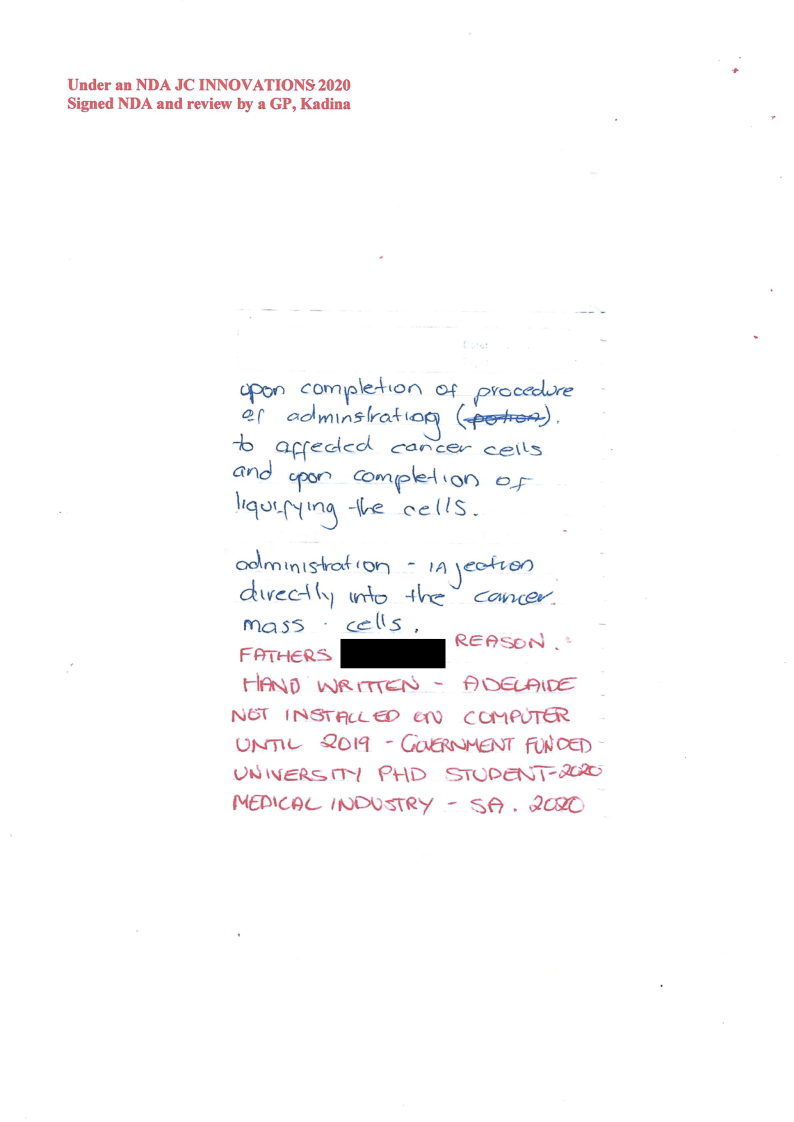 Under an NDA JC INNOVATIONS 2020
Signed NDA and review by a GP, Kadina
Date:
upon completion of procedure
of adminstrating (potion).
to affected cancer cells
and upon completion of
liquifying the cells.
administration - injection
directly into the cancer
mass cells.
FATHERS REASON.
HAND WRITTEN - ADELAIDE
NOT INSTALLED ON COMPUTER
UNTIL 2019 - GOVERNMENT FUNDED
UNIVERSITY PHD STUDENT-2020
MEDICAL INDUSTRY - SA. 2020